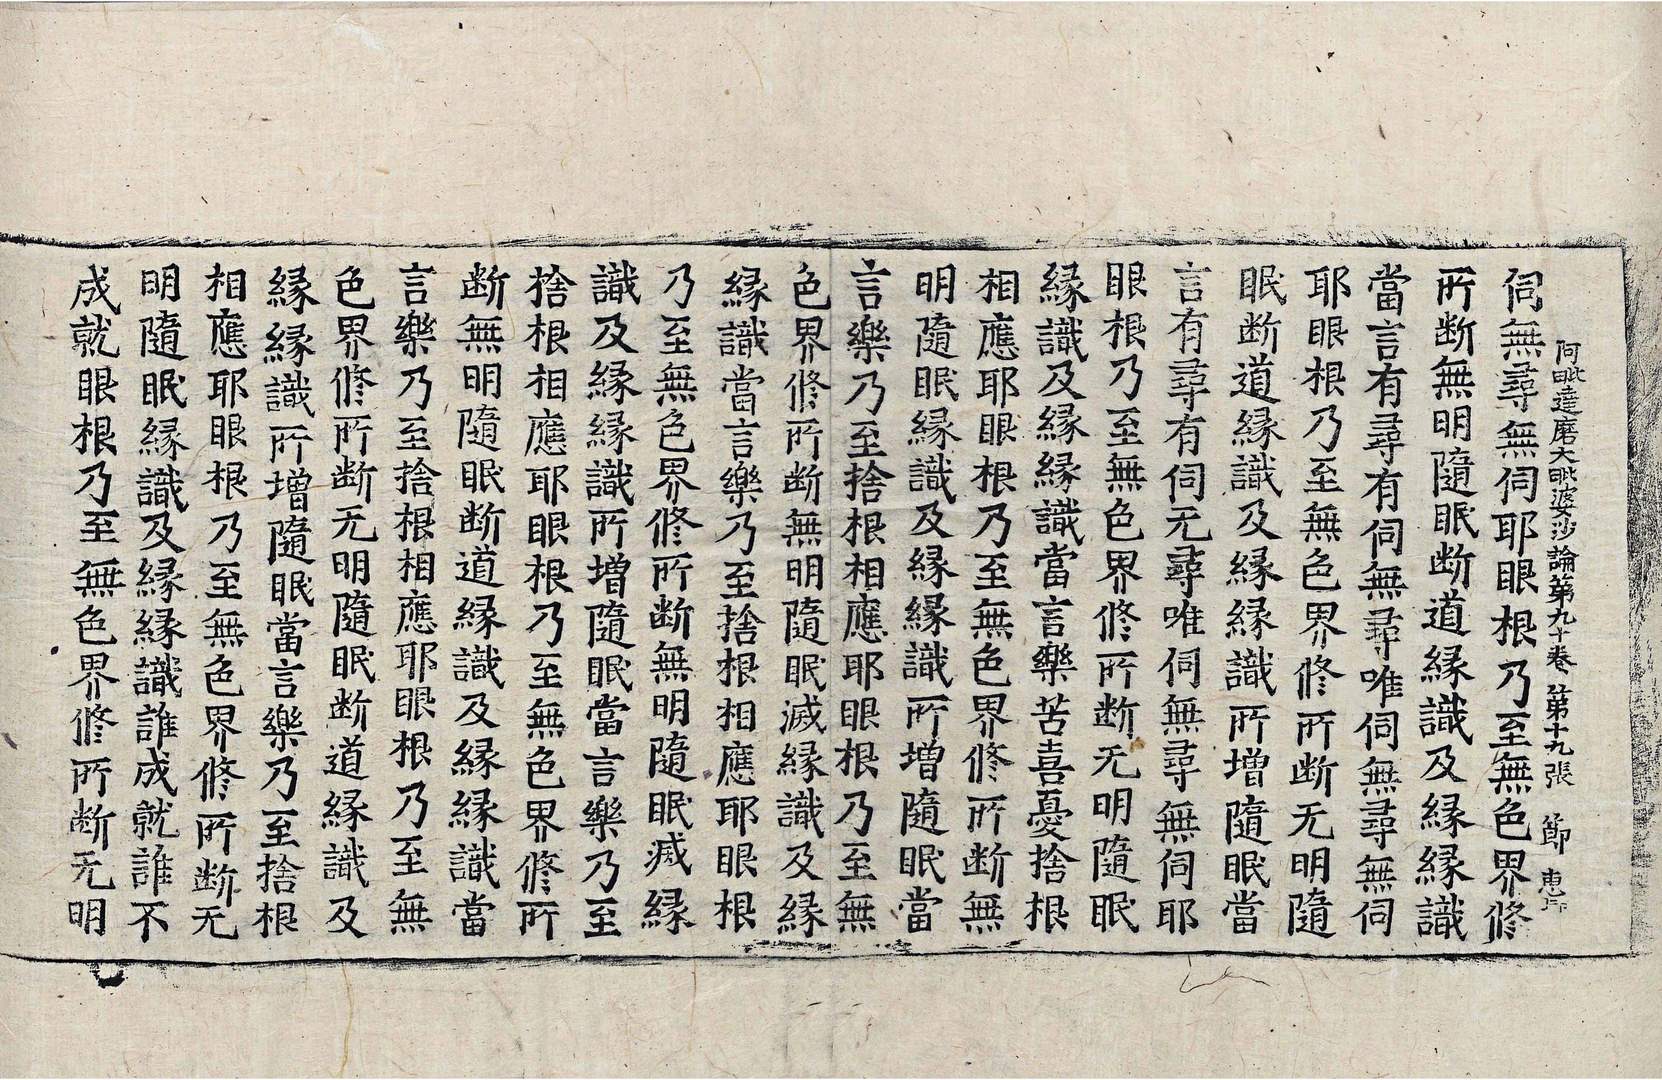 阿毗達磨大毗婆沙論第九十卷 第十九張 節 惠
伺無尋無伺耶眼根乃至無色界修
所断無明隨眠断道縁識及縁縁識
當言有尋有伺無尋唯伺無尋無伺
耶眼根乃至無色界修所断无明隨
眠断道縁識及縁縁識所増隨眠當
言有尋有伺无尋唯伺無尋無伺耶
眼根乃至無色界修所断无明隨眠
縁識及縁縁識當言樂苦喜憂捨根
相應耶眼根乃至無色界修所断無
明隨眠縁識及縁縁識所増隨眠當
言樂乃至捨根相應耶眼根乃至無
色界修所断無明隨眠滅縁識及縁
縁識當言樂乃至捨根相應耶眼根
乃至無色界修所断無明隨眠滅縁
識及縁縁識所増隨眠當言樂乃至
捨根相應耶眼根乃至無色界修所
断無明隨眠断道縁識及縁縁識當
言樂乃至捨根相應耶眼根乃至無
色界修所断无明隨眠断道縁識及
縁縁識所増隨眠當言樂乃至捨根
相應耶眼根乃至無色界修所断无
明隨眠縁識及縁縁識誰成就誰不
成就眼根乃至無色界修所断无明